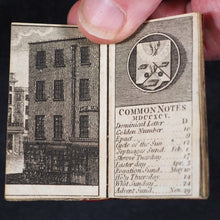 COMMON NOTES
MDCCXCV.
Dominical Letter D
Golden Number 10
Epact 9
Cycle of the Sun
Septuages. Sund. Feb. 1
Shrove Tuesday 17
Easter day Apr. 5
Rogation Sund. May 10
Holy Thursday 14
Whit Sunday 24
Advent Sund. Nov. 29